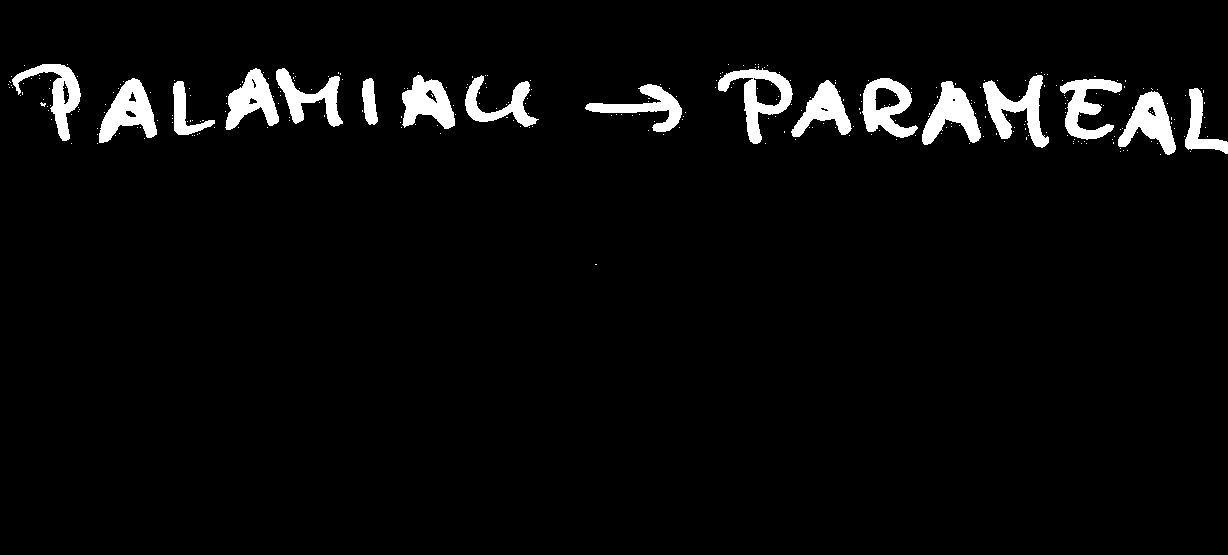 PALAMIAU → PARAMEAL